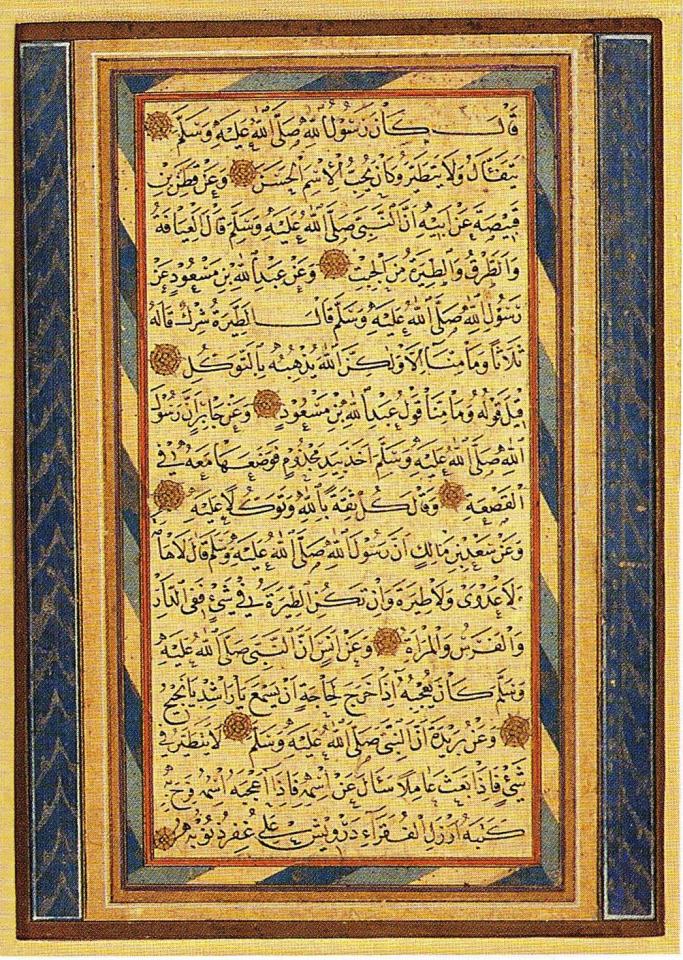 قال كان رسول الله صلى الله عليه وسلم
يتفائل ولا يتطير وكان يحب الاسم الحسن وعن قطن بن
قبيصة عن ابيه ان النبي صلى الله عليه وسلم قال العيافة
والطرق والطيرة من الجبت وعن عبد الله بن مسعود عن
رسول الله صلى الله عليه وسلم قال الطيرة شرك قاله
ثلاثا وما منا الا ولكن الله يذهبه بالتوكل
قيل قوله وما منا قول عبد الله بن مسعود وعن جابر ان رسول
الله صلى الله عليه وسلم اخذ بيد مجذوم فوضعها معه في
القصعة وقال كل ثقة بالله وتوكلا عليه
وعن سعد بن مالك ان رسول الله صلى الله عليه وسلم قال لا هامة
لا عدوى ولا طيرة وان تكن الطيرة في شئ ففي الدار
والفرس والمرأة وعن انس ان النبي صلى الله عليه
وسلم كان يعجبه اذا خرج لحاجة ان يسمع يا راشد يا نجيح
وعن بريدة ان النبي صلى الله عليه وسلم لا يتطير في
شئ فاذا بعث عاملا سأل عن اسمه فاذا اعجبه اسمه فرح به
كتبه ارذل الفقراء درويش علي غفر ذنوبه